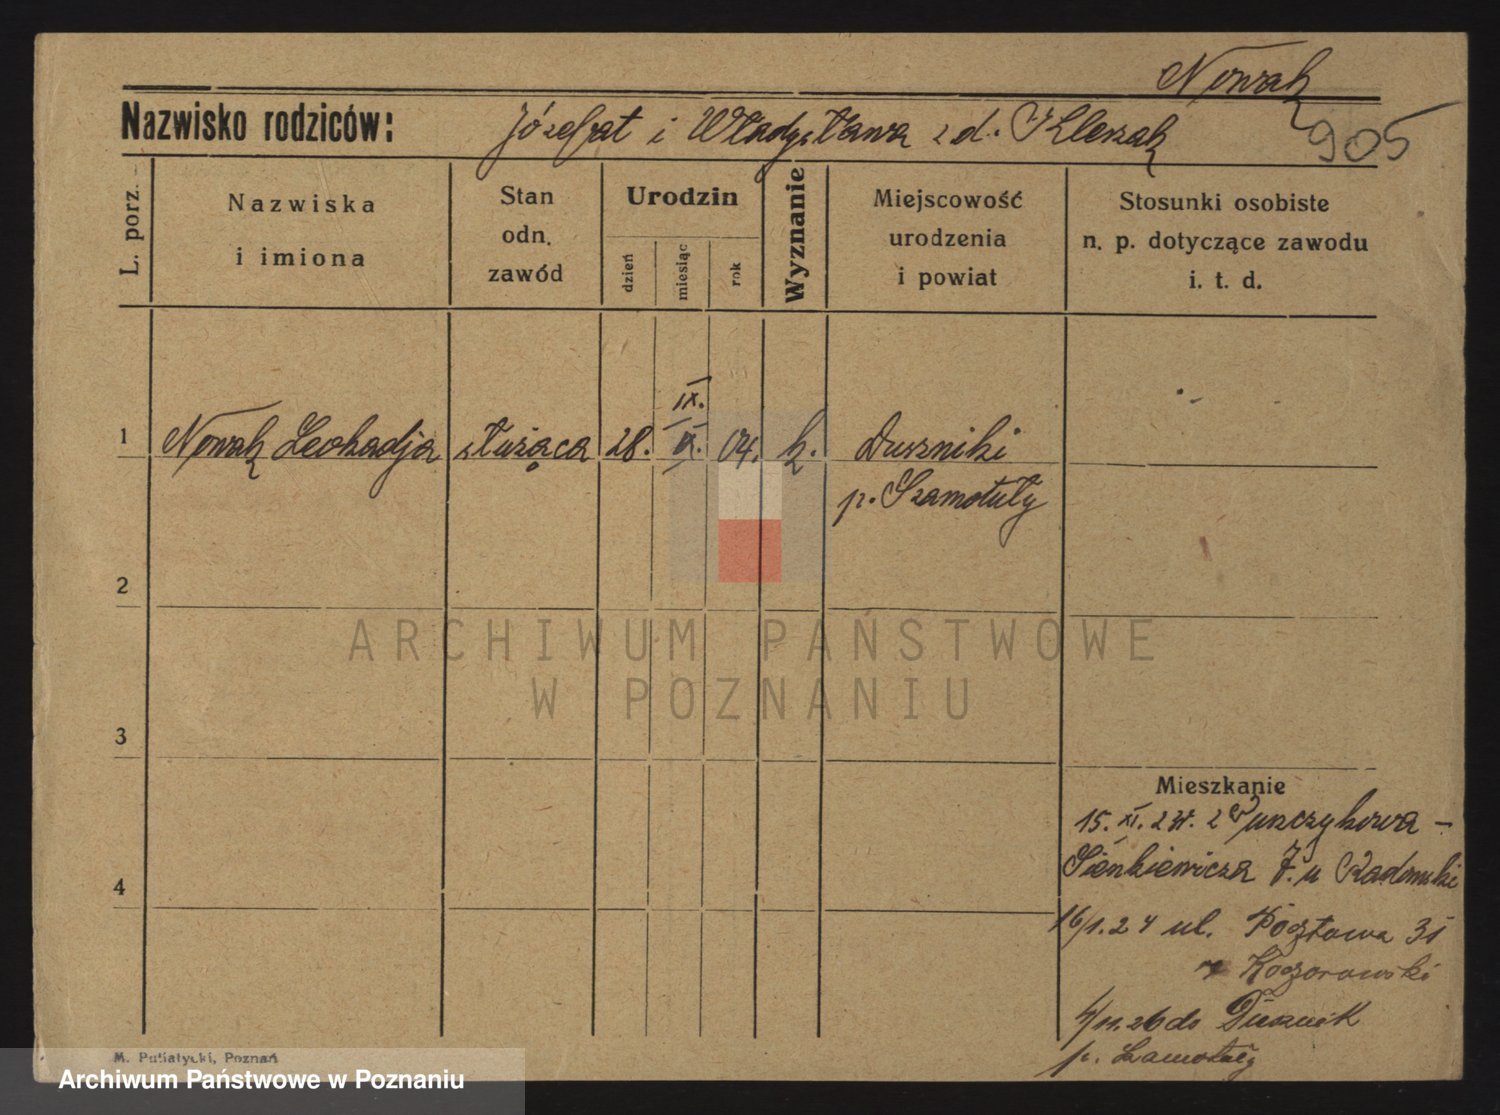 Nowak
Nazwisko rodziców: Józefat i Władysława z d. Kleszak
905
L. porz.
Nazwiska
i imiona
Stan
odn.
zawód
Urodzin
dzień
miesiąc
rok
Wyznanie
Miejscowość
urodzenia
i powiat
Stosunki osobiste
n. p. dotyczące zawodu
i. t. d.
IX.
1 Nowak Leokadja służąca 28. IX. 04. k. Duszniki
p. Szamotuły
2
ARCHIWUM PAŃSTWOWE
W POZNANIU
3
Mieszkanie
15. XI. 23. z
Sienkiewicza 7. u Radomski
4
16/1.24 ul. Pocztowa 31
Koczorowski
4/11.26 do Dusznik
p. Szamotuły
M. Putiatycki, Poznań
Archiwum Państwowe w Poznaniu